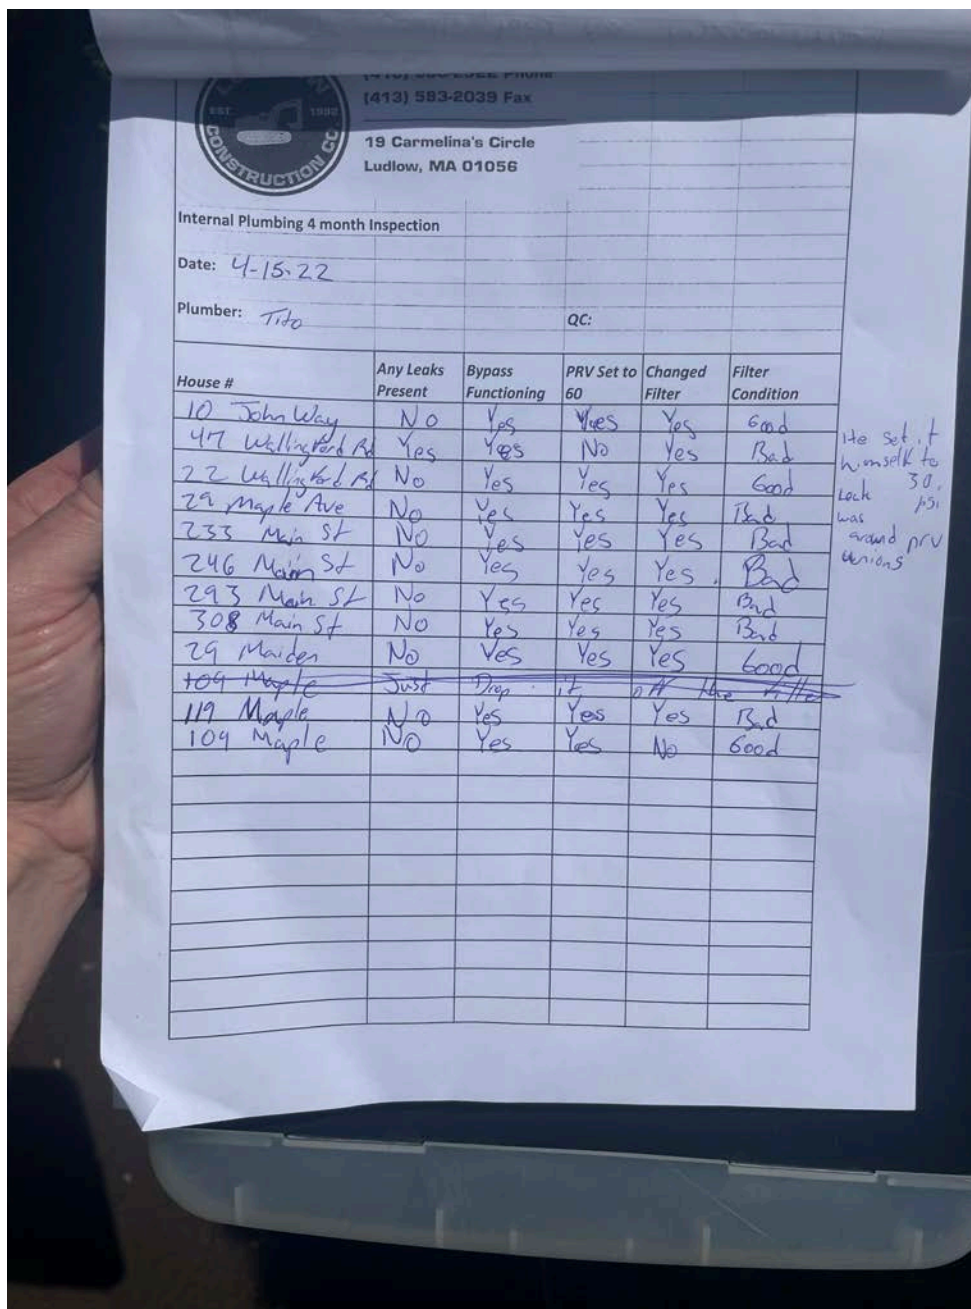 (413) 583-2039 Fax
EST. 1992
CONSTRUCTION CO
19 Carmelina's Circle
Ludlow, MA 01056
Internal Plumbing 4 month Inspection
Date: 4-15-22
Plumber: Tito QC:
House # Any Leaks Present Bypass Functioning PRV Set to 60 Changed Filter Filter Condition
10 John Way No Yes Yes Yes Good
47 Wallingford Rd Yes Yes No Yes Bad
22 Wallingford Rd No Yes Yes Yes Good
29 Maple Ave No Yes Yes Yes Bad
233 Main St No Yes Yes Yes Bad
246 Main St No Yes Yes Yes. Bad
293 Main St No Yes Yes Yes Bad
308 Main St No Yes Yes Yes Bad
29 Maiden No Yes Yes Yes Good
109 Maple Just Drop it off the filter
119 Maple No Yes Yes Yes Bad
109 Maple No Yes Yes No Good
He set it
himself to
30.
Leak psi
was
around prv
unions